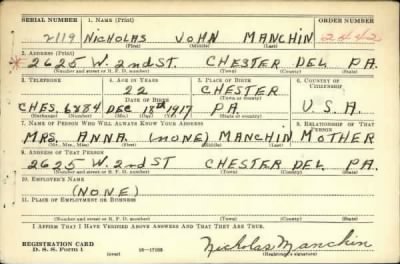 SERIAL NUMBER 1. NAME (Print) ORDER NUMBER
2119 NICHOLAS JOHN MANCHIN 2442
(First) (Middle) (Last)
2. ADDRESS (Print)
* 2625 W. 2nd ST. CHESTER DEL PA.
(Number and street or R. F. D. number) (Town) (County) (State)
3. TELEPHONE 4. AGE IN YEARS 5. PLACE OF BIRTH 6. COUNTRY OF CITIZENSHIP
22 CHESTER
DATE OF BIRTH (Town or county)
CHES. 6884 DEC 18th 1917 PA U.S.A.
(Exchange) (Number) (Mo.) (Day) (Yr.) (State or country)
7. NAME OF PERSON WHO WILL ALWAYS KNOW YOUR ADDRESS 8. RELATIONSHIP OF THAT PERSON
MRS. ANNA (NONE) MANCHIN MOTHER
(Mr., Mrs., Miss) (First) (Middle) (Last)
9. ADDRESS OF THAT PERSON
2625 W. 2nd ST CHESTER DEL PA.
(Number and street or R. F. D. number) (Town) (County) (State)
10. EMPLOYER'S NAME
(NONE)
11. PLACE OF EMPLOYMENT OR BUSINESS
(Number and street or R. F. D. number) (Town) (County) (State)
I AFFIRM THAT I HAVE VERIFIED ABOVE ANSWERS AND THAT THEY ARE TRUE.
REGISTRATION CARD
D. S. S. Form 1
(over)
Nicholas Manchin